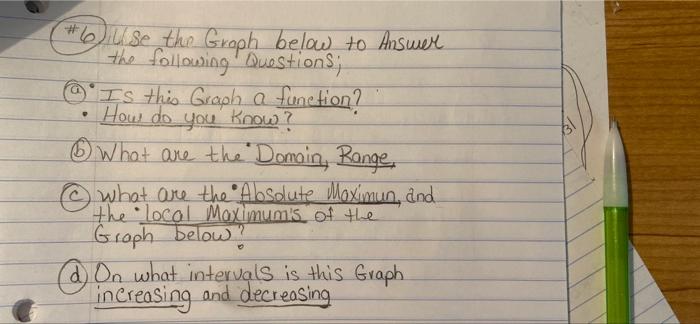 #6 Use the Graph below to Answer
the following Questions;
(a) • Is this Graph a function?
• How do you Know?
(b) What are the • Domain, Range,
(c) what are the • Absolute Maximun, and
the • local Maximum's of the
Graph below?
(d) On what intervals is this Graph
increasing and decreasing